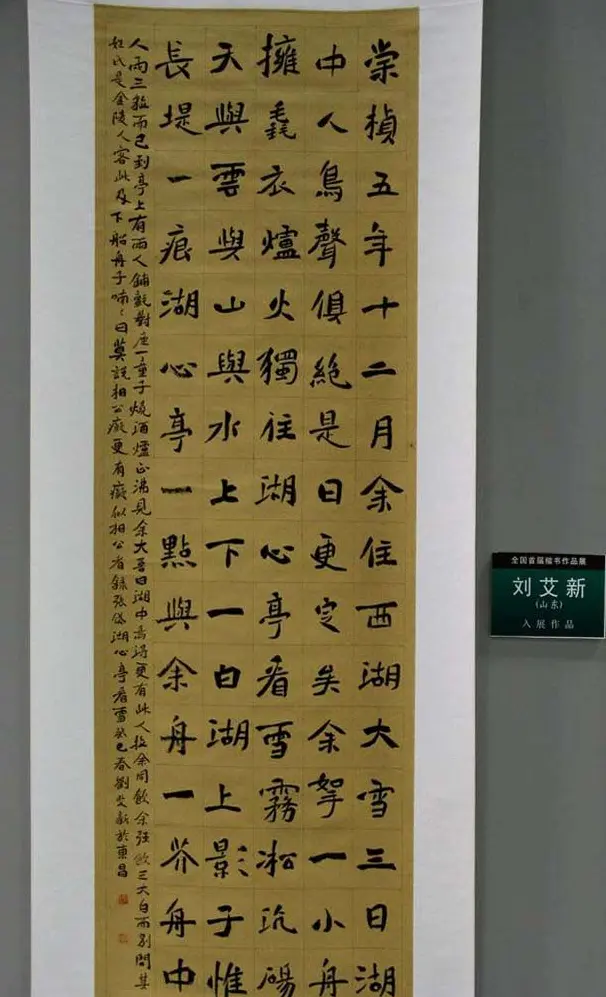 崇禎五年十二月余住西湖大雪三日湖
中人鳥聲俱絕是日更定矣余拏一小舟
擁毳衣爐火獨往湖心亭看雪霧凇沆碭
天與雲與山與水上下一白湖上影子惟
長堤一痕湖心亭一點與余舟一芥舟中
人兩三粒而已到亭上有兩人鋪氈對座一童子燒酒爐正沸見余大喜曰湖中焉得更有此人拉余同飲余強飲三大白而別問其
姓氏是金陵人客此及下船舟子喃々曰莫說相公癡更有癡似相公者錄張岱湖心亭看雪癸巳春劉艾新於東昌
全国首届楷书作品展
刘艾新
(山东)
入展作品